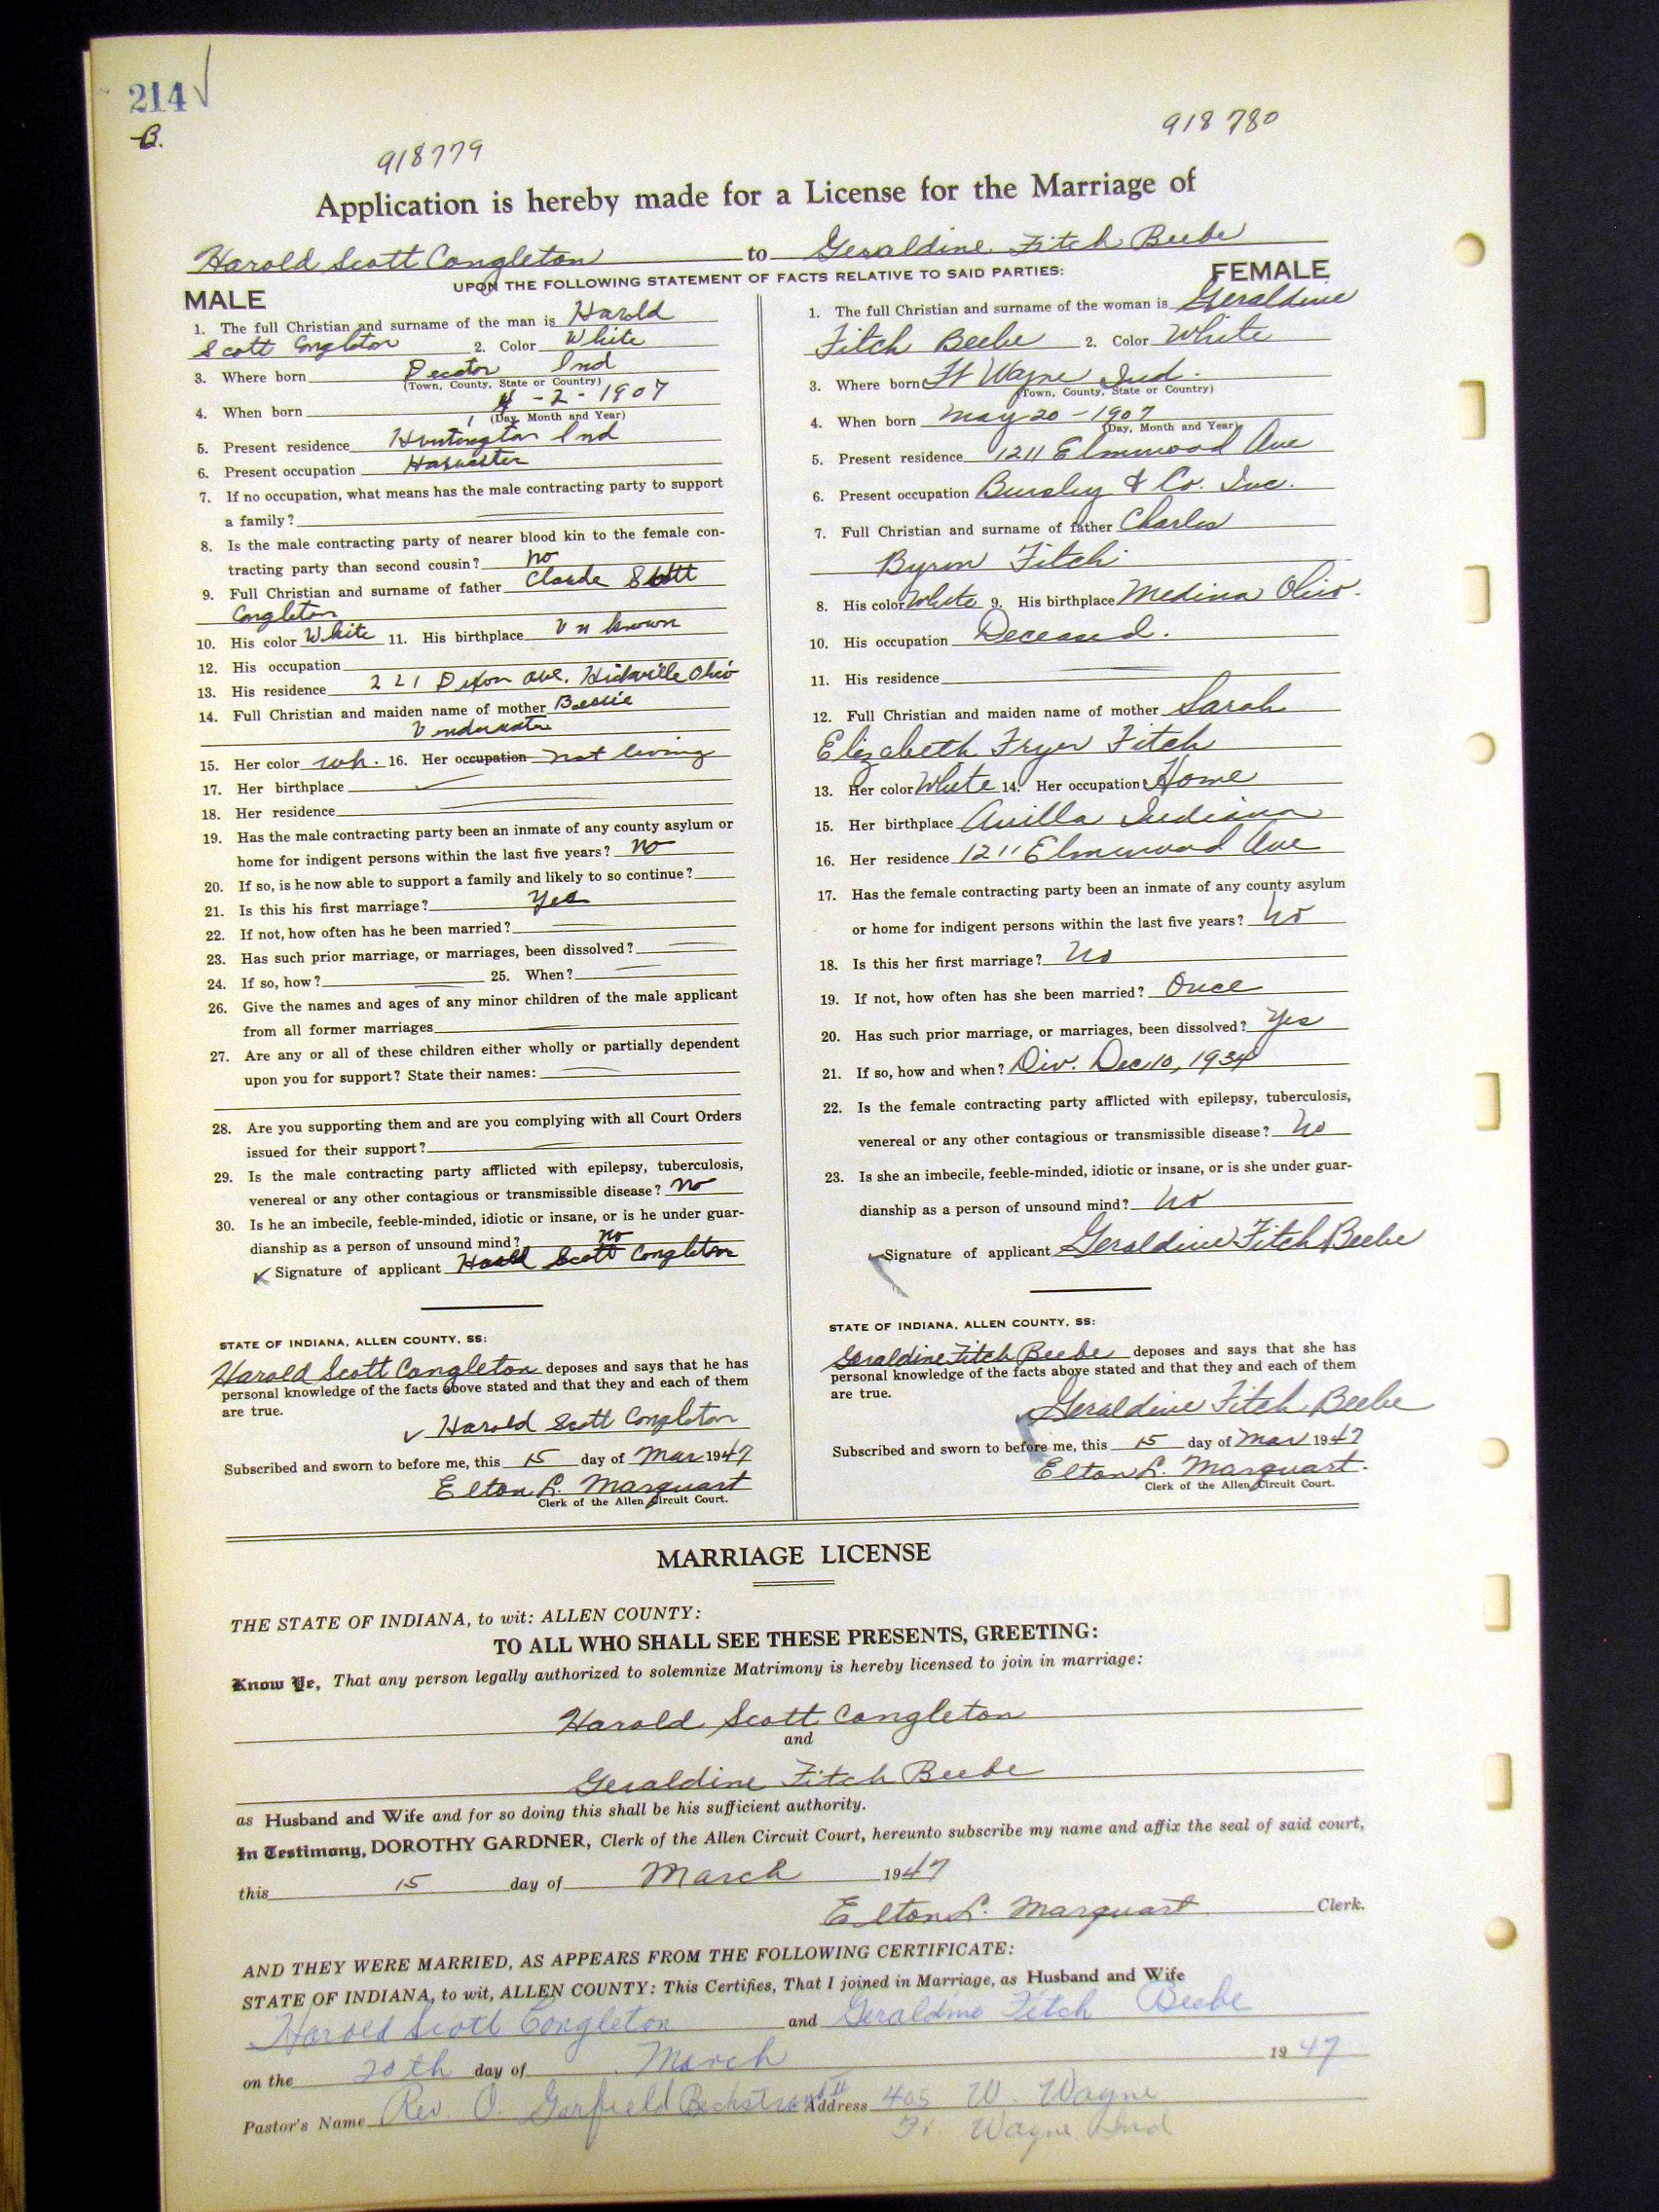 214
B.
918779
918780
Application is hereby made for a License for the Marriage of
Harold Scott Congleton to Geraldine Fitch Beebe
UPON THE FOLLOWING STATEMENT OF FACTS RELATIVE TO SAID PARTIES:
MALE
1. The full Christian and surname of the man is Harold
Scott Congleton 2. Color White
3. Where born Decator Ind
(Town, County, State or Country)
4. When born 4-2-1907
(Day, Month and Year)
5. Present residence Huntington Ind
6. Present occupation Harvester
7. If no occupation, what means has the male contracting party to support
a family?
8. Is the male contracting party of nearer blood kin to the female con-
tracting party than second cousin? no
9. Full Christian and surname of father Claude Scott
Congleton
10. His color White 11. His birthplace Unknown
12. His occupation
13. His residence 221 Ave. Hicksville Ohio
14. Full Christian and maiden name of mother Bessie
15. Her color wh. 16. Her occupation not living
17. Her birthplace
18. Her residence
19. Has the male contracting party been an inmate of any county asylum or
home for indigent persons within the last five years? no
20. If so, is he now able to support a family and likely to so continue?
21. Is this his first marriage? Yes
22. If not, how often has he been married?
23. Has such prior marriage, or marriages, been dissolved?
24. If so, how? 25. When?
26. Give the names and ages of any minor children of the male applicant
from all former marriages
27. Are any or all of these children either wholly or partially dependent
upon you for support? State their names:
28. Are you supporting them and are you complying with all Court Orders
issued for their support?
29. Is the male contracting party afflicted with epilepsy, tuberculosis,
venereal or any other contagious or transmissible disease? no
30. Is he an imbecile, feeble-minded, idiotic or insane, or is he under guar-
dianship as a person of unsound mind? no
Signature of applicant Harold Scott Congleton
STATE OF INDIANA, ALLEN COUNTY, SS:
Harold Scott Congleton deposes and says that he has
personal knowledge of the facts above stated and that they and each of them
are true.
Harold Scott Congleton
Subscribed and sworn to before me, this 15 day of Mar 1947
Elton L. Marquart
Clerk of the Allen Circuit Court.
FEMALE
1. The full Christian and surname of the woman is Geraldine
Fitch Beebe 2. Color White
3. Where born Ft Wayne Ind.
(Town, County, State or Country)
4. When born May-20-1907
(Day, Month and Year)
5. Present residence 1211 Elmwood Ave
6. Present occupation Bursley & Co. Inc.
7. Full Christian and surname of father Charles
Byron Fitch
8. His color White 9. His birthplace Medina Ohio.
10. His occupation Deceased.
11. His residence
12. Full Christian and maiden name of mother Sarah
Elizabeth Fryer Fitch
13. Her color White 14. Her occupation Home
15. Her birthplace Avilla Indiana
16. Her residence 1211 Elmwood Ave
17. Has the female contracting party been an inmate of any county asylum
or home for indigent persons within the last five years? No
18. Is this her first marriage? No
19. If not, how often has she been married? Once
20. Has such prior marriage, or marriages, been dissolved? Yes
21. If so, how and when? Div. Dec 10, 1934
22. Is the female contracting party afflicted with epilepsy, tuberculosis,
venereal or any other contagious or transmissible disease? No
23. Is she an imbecile, feeble-minded, idiotic or insane, or is she under guar-
dianship as a person of unsound mind? No
Signature of applicant Geraldine Fitch Beebe
STATE OF INDIANA, ALLEN COUNTY, SS:
Geraldine Fitch Beebe deposes and says that she has
personal knowledge of the facts above stated and that they and each of them
are true.
Geraldine Fitch Beebe
Subscribed and sworn to before me, this 15 day of Mar 1947
Elton L. Marquart.
Clerk of the Allen Circuit Court.
MARRIAGE LICENSE
THE STATE OF INDIANA, to wit: ALLEN COUNTY:
TO ALL WHO SHALL SEE THESE PRESENTS, GREETING:
Know Ye, That any person legally authorized to solemnize Matrimony is hereby licensed to join in marriage:
Harold Scott Congleton
and
Geraldine Fitch Beebe
as Husband and Wife and for so doing this shall be his sufficient authority.
In Testimony, DOROTHY GARDNER, Clerk of the Allen Circuit Court, hereunto subscribe my name and affix the seal of said court,
this 15 day of March 1947
Elton L. Marquart Clerk.
AND THEY WERE MARRIED, AS APPEARS FROM THE FOLLOWING CERTIFICATE:
STATE OF INDIANA, to wit, ALLEN COUNTY: This Certifies, That I joined in Marriage, as Husband and Wife
Harold Scott Congleton and Geraldine Fitch Beebe
on the 20th day of March 1947
Pastor's Name Rev. O. Garfield Beckstrand II Address 405 W. Wayne
Ft. Wayne Ind